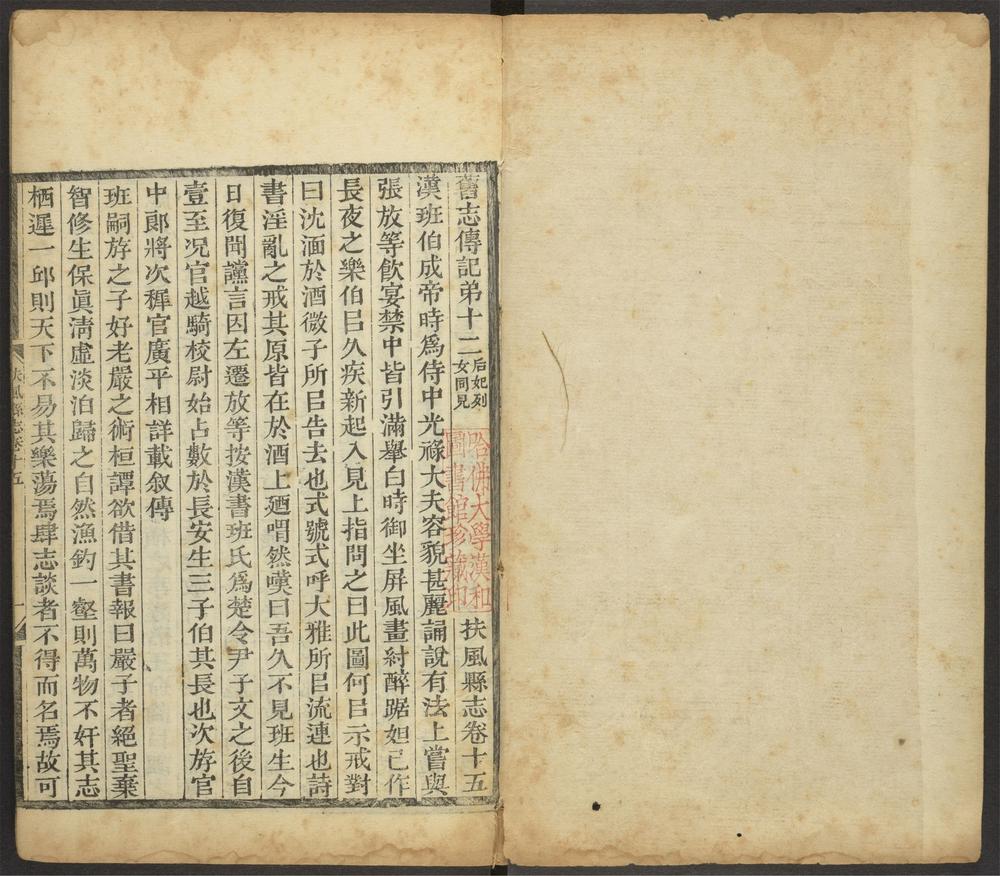 舊志傳記弟十二 后妃列女同見 扶風縣志卷十五
漢班伯成帝時爲侍中光祿大夫容貌甚麗誦說有法上嘗與
張放等飲宴禁中皆引滿舉白時御坐屏風畫紂醉踞妲己作
長夜之樂伯㠯久疾新起入見上指問之曰此圖何㠯示戒對
曰沈湎於酒微子所㠯告去也式號式呼大雅所㠯流連也詩
書淫亂之戒其原皆在於酒上廼喟然嘆曰吾久不見班生今
日復聞讜言因左遷放等按漢書班氏爲楚令尹子文之後自
壹至況官越騎校尉始占數於長安生三子伯其長也次斿官
中郎將次穉官廣平相詳載叙傳
班嗣斿之子好老嚴之術桓譚欲借其書報曰嚴子者絕聖棄
智修生保眞淸虛淡泊歸之自然漁釣一壑則萬物不奸其志
栖遲一邱則天下不易其樂蕩焉肆志談者不得而名焉故可
扶風縣志卷十五 一
哈佛大學漢和
圖書館珍藏印